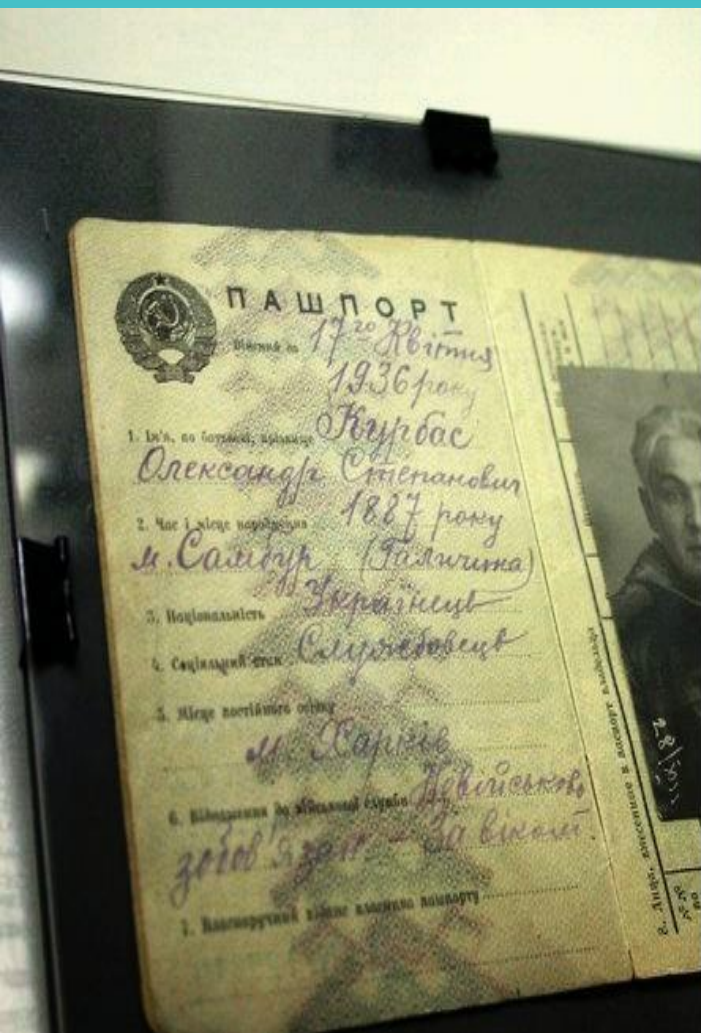 ПАШПОРТ
Дійсний до 17го Квітня
1936 року
1. Ім'я, по батькові, прізвище Курбас
Олександр Степанович
2. Час і місце народження 1887 року
м. Самбур (Галичина)
3. Національність Українець
4. Соціальний стан Службовець
5. Місце постійного
м. Харків
6. Відношення до військової служби Невійськово
зобов'язан – За віком.
7. Власноручний підпис власника пашпорту
8. Лица, внесенные в паспорт владельца
№№